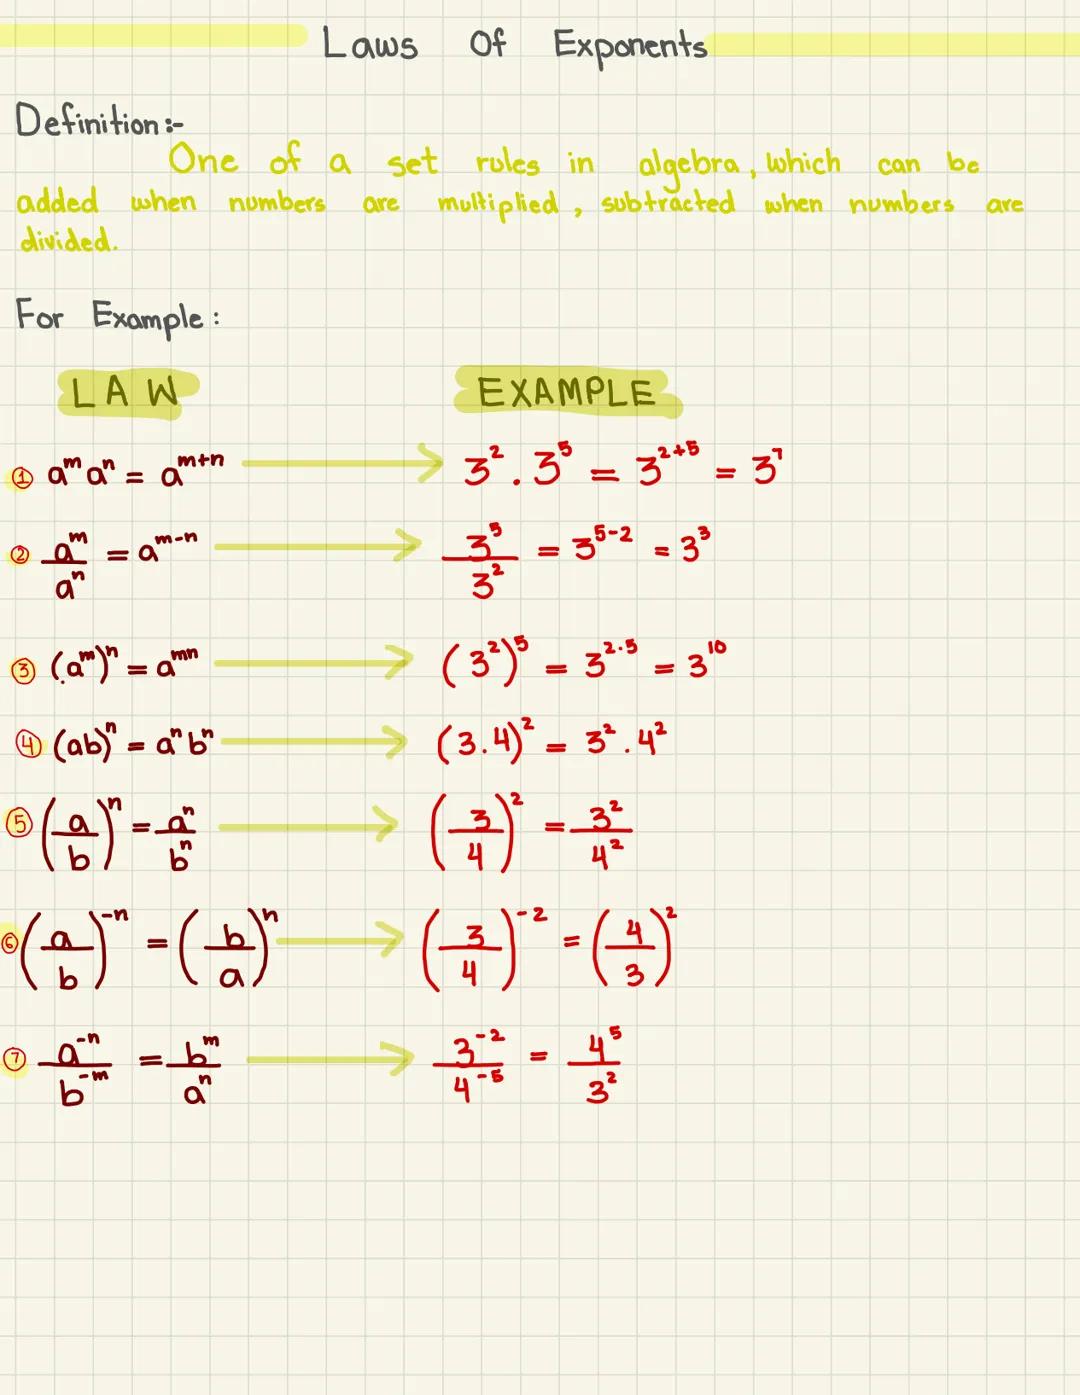 Laws Of Exponents
Definition :-
One of a set rules in algebra, which can be
added when numbers are multiplied, subtracted when numbers are
divided.
For Example :
LAW EXAMPLE
① aᵐ aⁿ = aᵐ⁺ⁿ → 3² . 3⁵ = 3²⁺⁵ = 3⁷
② aᵐ/aⁿ = aᵐ⁻ⁿ → 3⁵/3² = 3⁵⁻² = 3³
③ (aᵐ)ⁿ = aᵐⁿ → (3²)⁵ = 3^2·5 = 3¹⁰
④ (ab)ⁿ = aⁿ bⁿ → (3.4)² = 3² . 4²
⑤ (a/b)ⁿ = aⁿ/bⁿ → (3/4)² = 3²/4²
⑥ (a/b)⁻ⁿ = (b/a)ⁿ → (3/4)⁻² = (4/3)²
⑦ a⁻ⁿ/b⁻ᵐ = bᵐ/aⁿ → 3⁻²/4⁻⁵ = 4⁵/3²